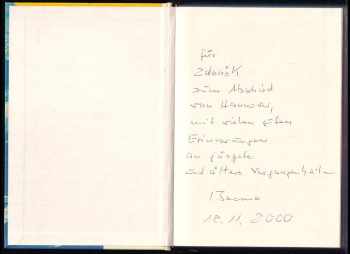 für
Zdeněk
zum Abschied
von Hannover,
mit vielen guten
Erinnerungen
an jüngste
und ältere Vergangenheiten
18.11.2000